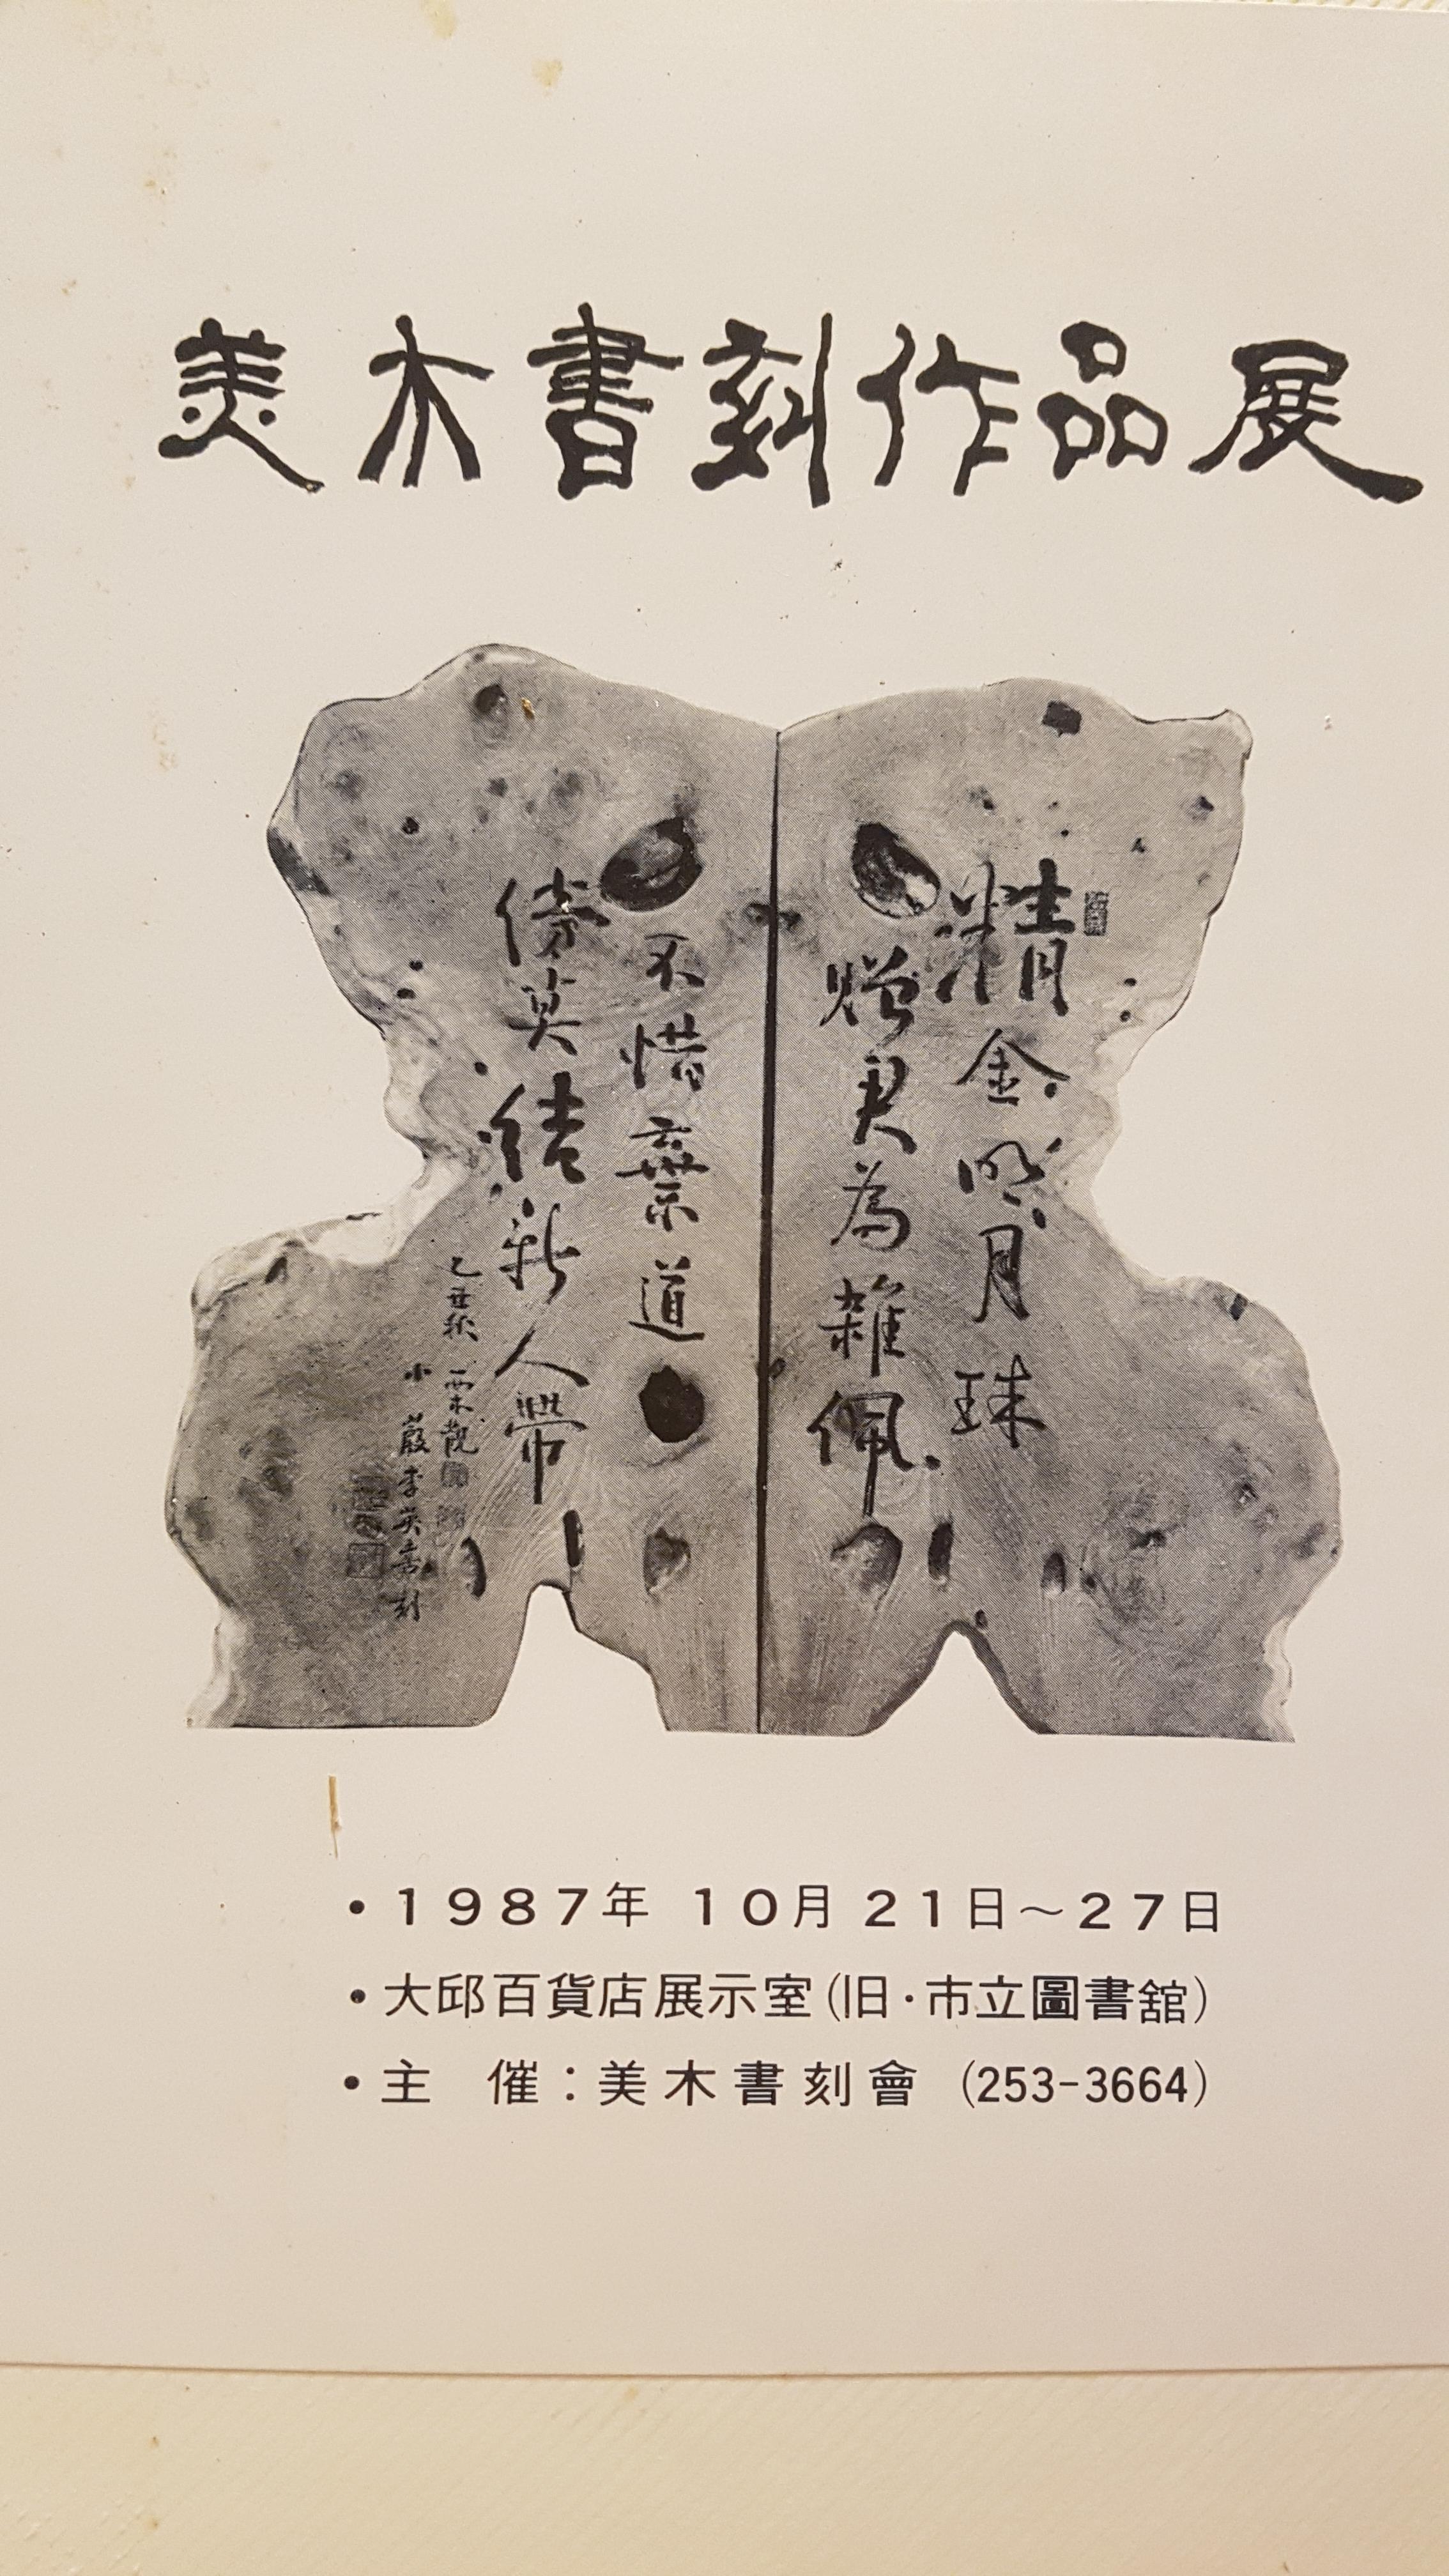 美木書刻作品展
精金明月珠
贈君為雜佩
不惜棄道
傍莫結新人帶
乙丑秋
小 李英 刻
•1987年 10月 21日～27日
•大邱百貨店展示室(旧·市立圖書舘)
•主 催：美木書刻會 (253-3664)